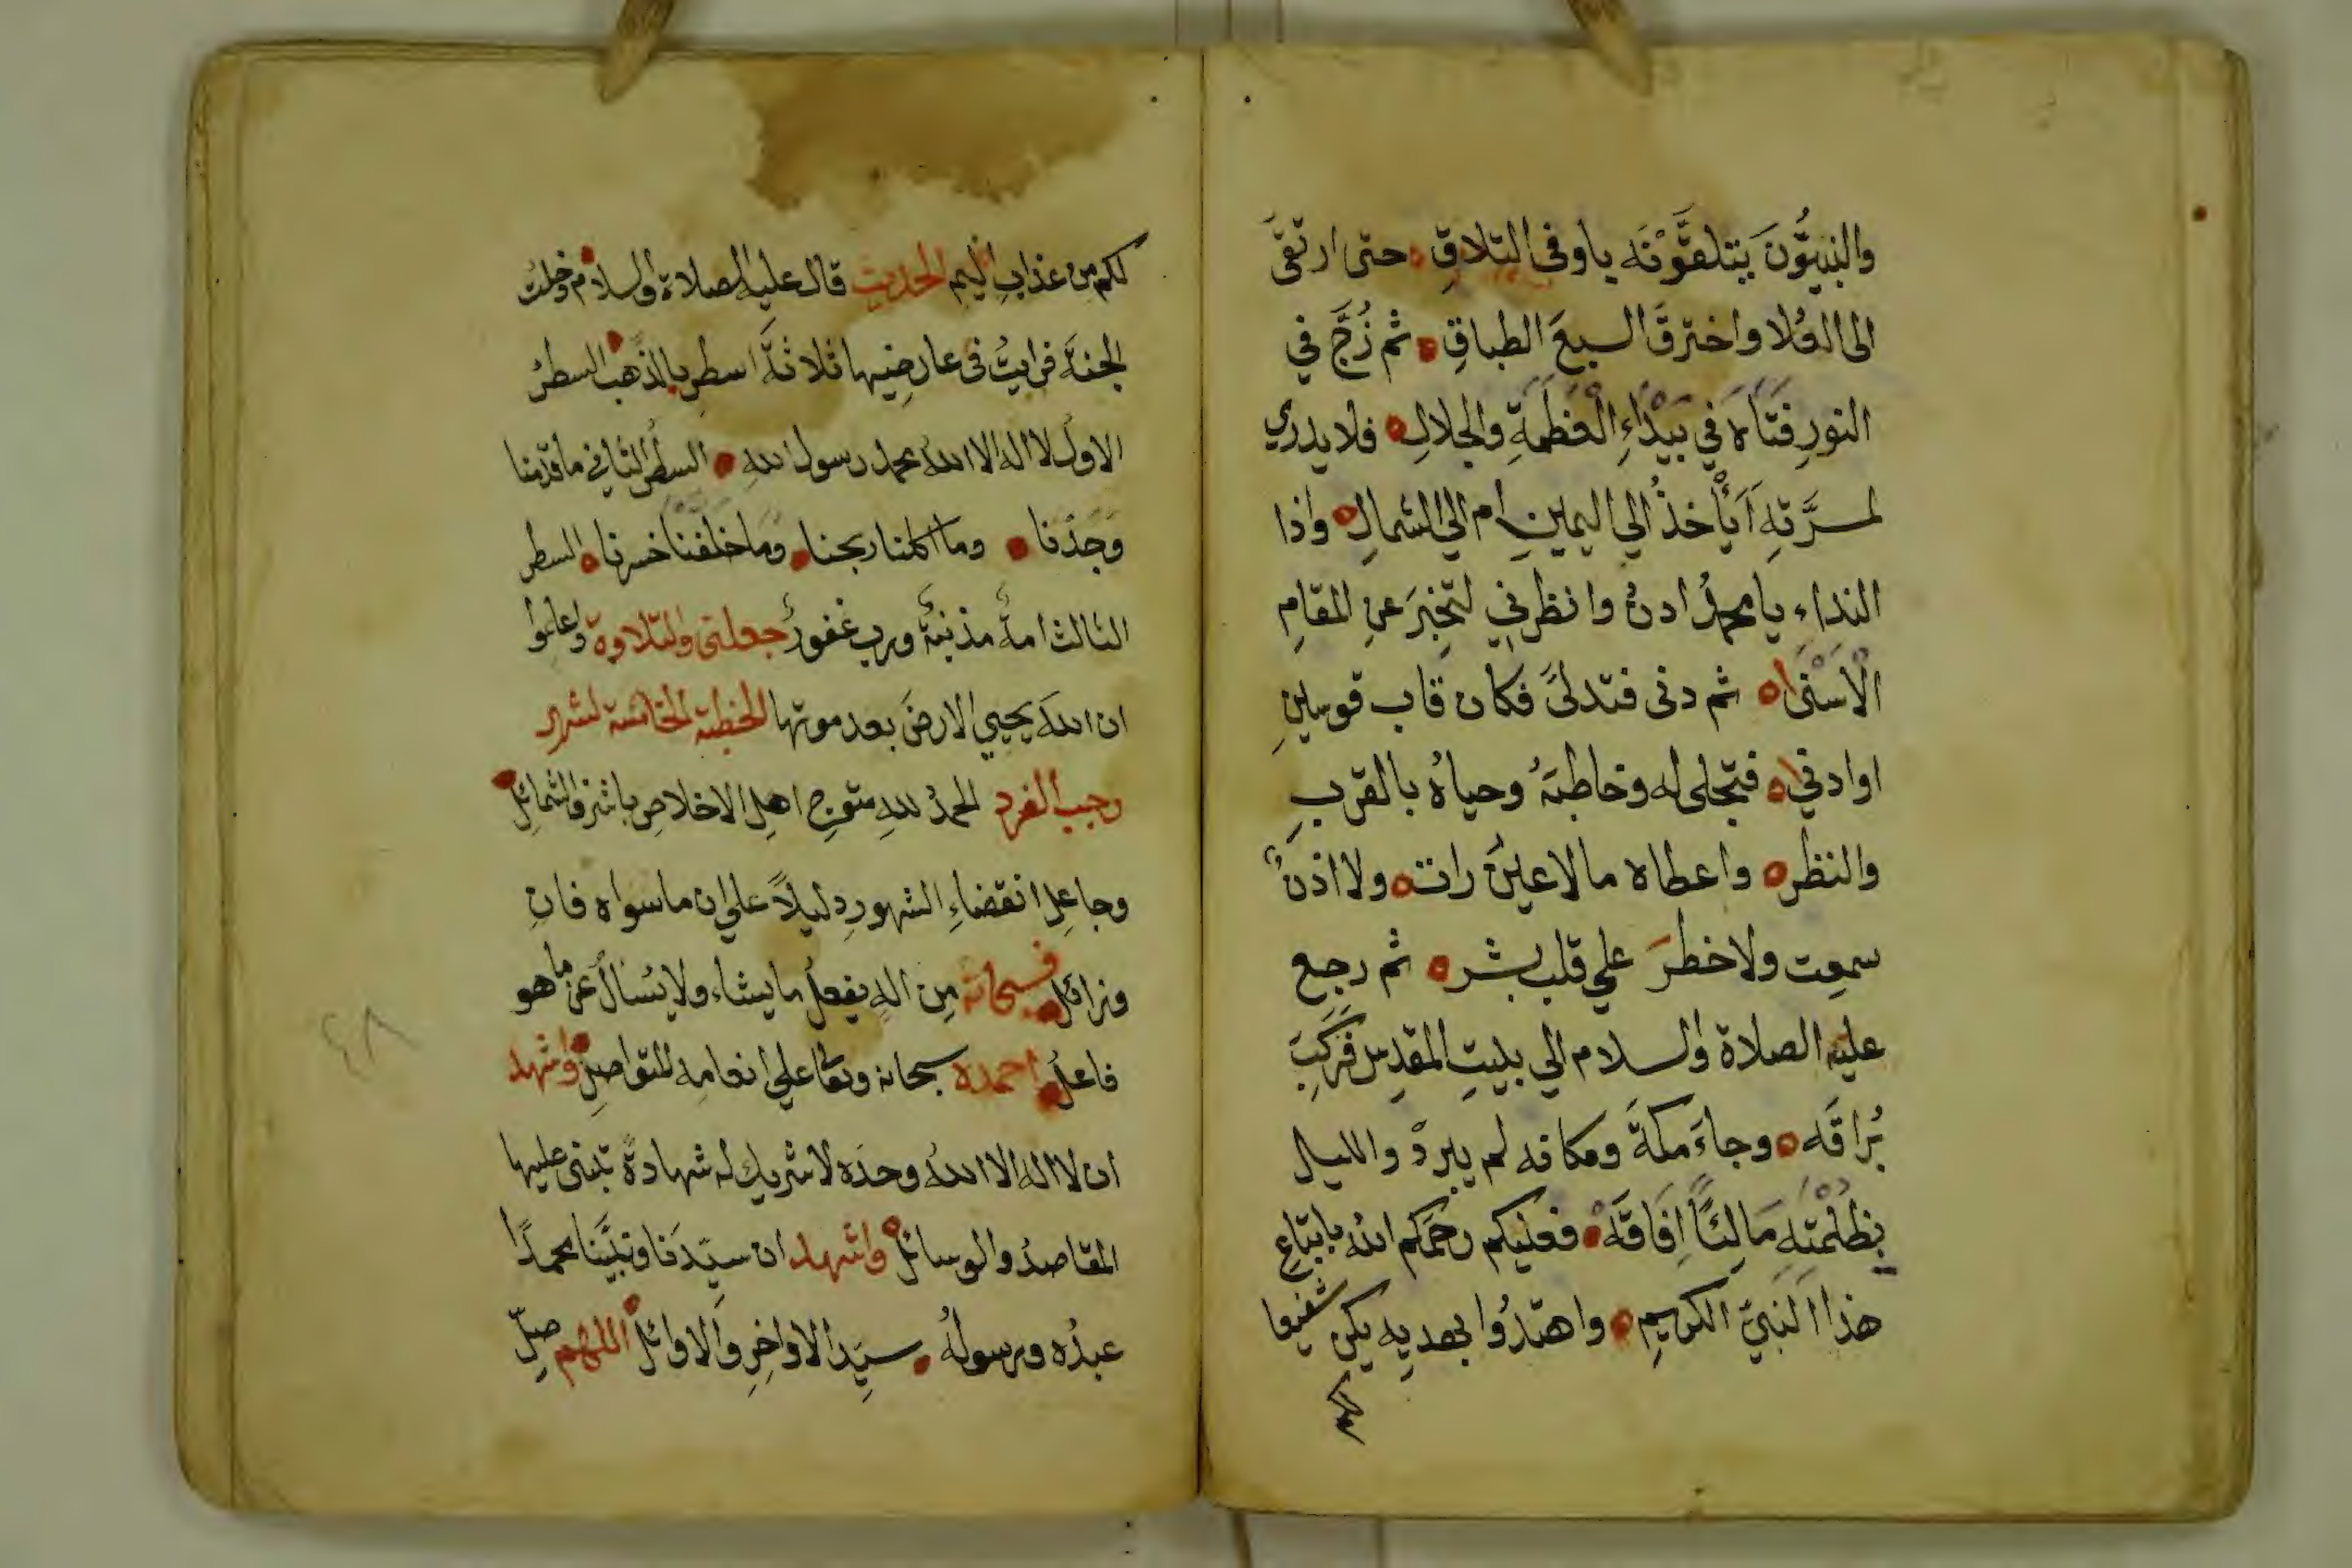 والنبيُّونَ يتلقَّوْنَه ياوفى التلاقِ حتى ارتقى
الى العُلا واخترقَ السبعَ الطباقِ ثم زُجَّ في
النورِ فَتَاهَ في بَيْدَاءِ الْعَظَمَةِ والجلالِ فلا يدري
لمسرَّتهِ أيأخذُ الي اليمينِ ام الي الشمالِ واذا
النداء يا محمدُ ادنُ وانظرني لتخبرَ عن المقامِ
الْاَسْنَى ثم دنى فتدلىَ فكان قاب قوسينِ
او ادنى فتجلى له وخاطبَهُ وحياهُ بالقربِ
والنظر واعطاه مالا عينٌ رات ولا اذنٌ
سمعت ولا خطرَ علي قلب بشر ثم رجع
عليه الصلاة والسلام الي بيتِ المقدس فركبَ
بُراقَه وجاءَ مكةَ ومكانه لم يبردْ والليل
بِظُلْمَتِهِ مَالِئًا اِفَاقَهُ فعليكم رحمَكم الله باتباعِ
هذا النَبيّ الكريمِ واهتدُوا بهديه يكن شفيعا
لكم
لكم من عذابٍ اليم الحديث قال عليه الصلاة والسلام دخلت
الجنةَ فرايتُ في عارضيها ثلاثةَ اسطرٍ بالذهب السطرُ
الاولُ لا اله الا اللهُ محمد رسول اللهِ السطر الثاني ما قدَّمنا
وَجَدْنا وما اكلنا ربحنا وَمَا خَلَفْنَا خسرنا السطر
الثالث امةٌ مذنبةٌ وربٌ غفورٌ جعلني والتلاوة واعلموا
ان اللهَ يحيي الارضَ بعد موتها الخطبة الخامسة لشهر
رجب الفرد الحمدُ للهِ متوجِ اهلِ الاخلاصِ باشرف الشمائلِ
وجاعلِ انقضاءِ الشهورِ دليلاً علي ان ما سواه فانٍ
وزائل فسبحانه مِن الهٍ يفعلُ ما يشاء ولا يُسْالُ عن ما هو
فاعل احمده سبحانه وتعا علي انعامِه المتواصِلِ واشهد
ان لا اله الا اللهُ وحدَه لا شريك له شهادةً تبنى عليها
المقاصدُ والوسائلُ واشهد ان سيّدَنا ونبيَّنا محمداً
عبدُه ورسولُه سيّدِ الاواخِرِ والاوائلِ اللهم صلِّ